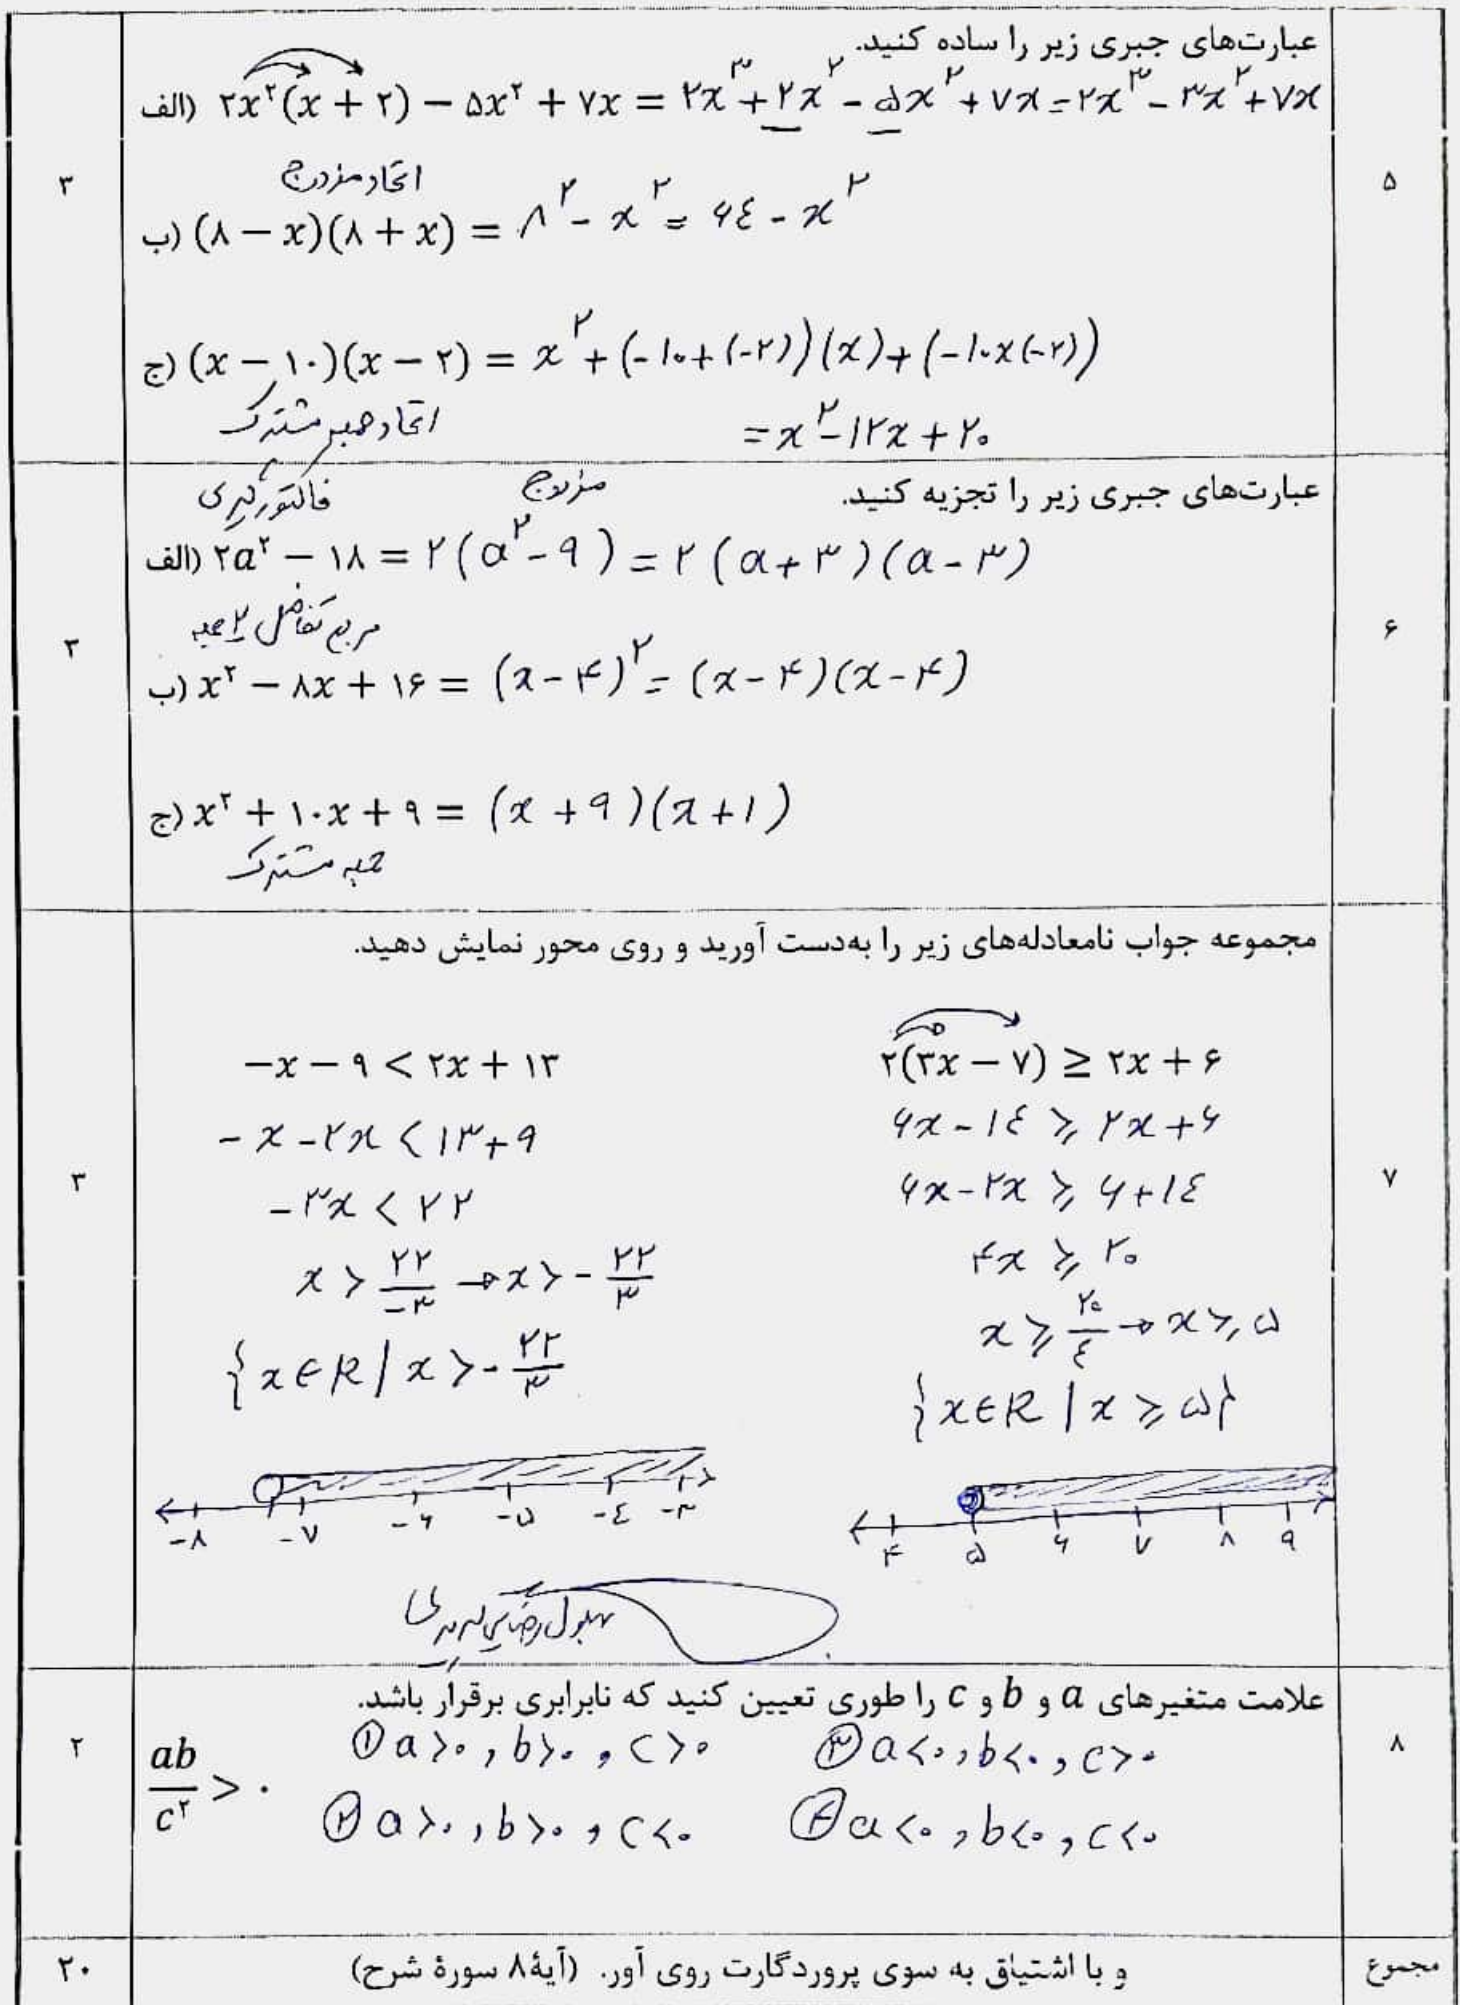 عبارت‌های جبری زیر را ساده کنید.
۵
۳
الف) ۲x²(x + ۲) − ۵x² + ۷x = ۲x³ + ۲x² − ۵x² + ۷x = ۲x³ − ۳x² + ۷x
اتحاد مزدوج
ب) (۸ − x)(۸ + x) = ۸² − x² = ۶٤ − x²
ج) (x − ۱۰)(x − ۲) = x² + (−۱۰+(−۲))(x) + (−۱۰×(−۲))
= x² − ۱۲x + ۲۰
اتحاد جمله مشترک
عبارت‌های جبری زیر را تجزیه کنید.
۶
۳
فاکتورگیری
مزدوج
الف) ۲a² − ۱۸ = ۲(a² − ۹) = ۲(a + ۳)(a − ۳)
مربع تفاضل ۲ جمله
ب) x² − ۸x + ۱۶ = (x − ۴)² = (x − ۴)(x − ۴)
ج) x² + ۱۰x + ۹ = (x + ۹)(x + ۱)
جمله مشترک
مجموعه جواب نامعادله‌های زیر را به‌دست آورید و روی محور نمایش دهید.
۷
۳
۲(۳x − ۷) ≥ ۲x + ۶
۶x − ۱٤ ≥ ۲x + ۶
۶x − ۲x ≥ ۶ + ۱٤
۴x ≥ ۲۰
x ≥ ۲۰/٤ → x ≥ ۵
{x ∈ R | x ≥ ۵}
۴ ۵ ۶ ۷ ۸ ۹
−x − ۹ < ۲x + ۱۳
−x − ۲x < ۱۳ + ۹
−۳x < ۲۲
x > ۲۲/−۳ → x > −۲۲/۳
{x ∈ R | x > −۲۲/۳
−۸ −۷ −۶ −۵ −٤ −۳
علامت متغیرهای a و b و c را طوری تعیین کنید که نابرابری برقرار باشد.
۸
۲
ab/c² > ۰
① a > ۰ , b > ۰ , c > ۰
② a > ۰ , b > ۰ , c < ۰
③ a < ۰ , b < ۰ , c > ۰
④ a < ۰ , b < ۰ , c < ۰
مجموع
و با اشتیاق به سوی پروردگارت روی آور. (آیهٔ ۸ سورهٔ شرح)
۲۰